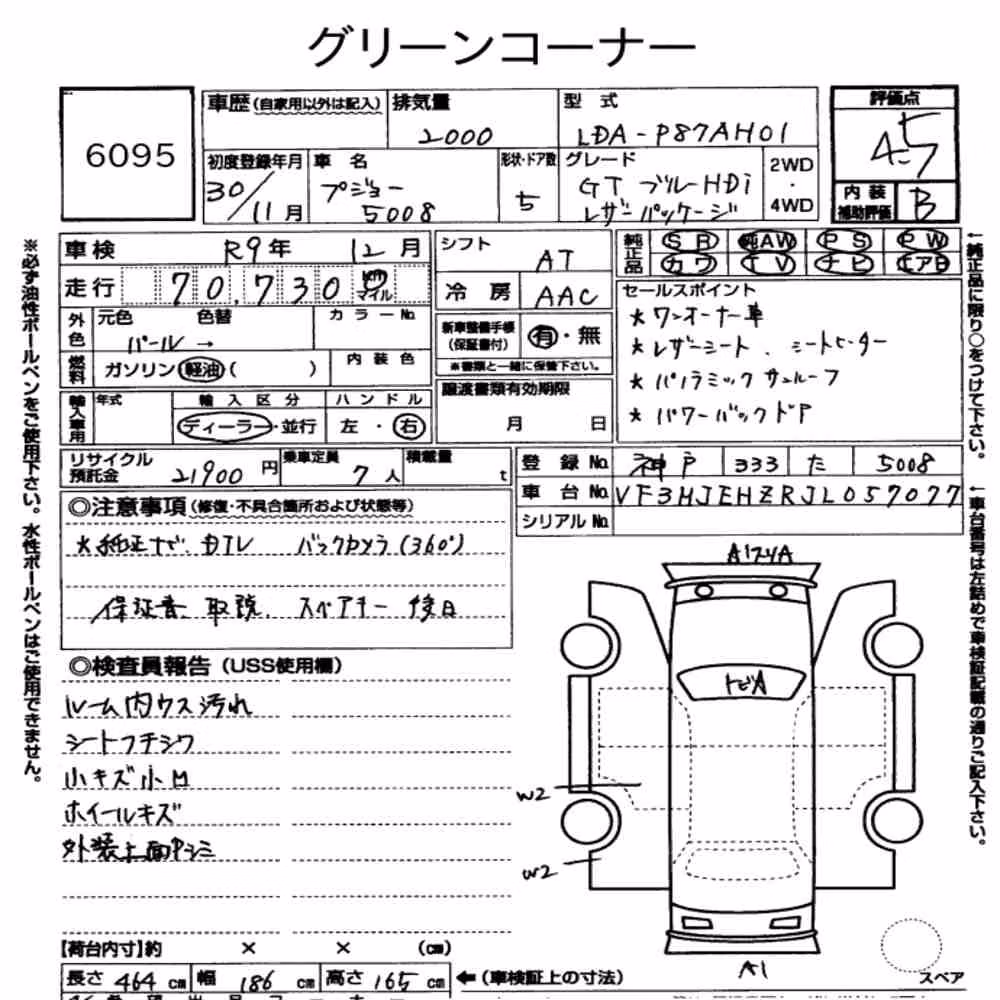 グリーンコーナー
6095
車歴(自家用以外は記入)
排気量
2000
型式
LDA-P87AH01
評価点
4.5
内装
補助評価
B
初度登録年月
30/11月
車名
プジョー
5008
形状・ドア数
5
グレード
GT ブルーHDi
レザーパッケージ
2WD
・
4WD
車検 R9年 12月
走行 70,730 km
マイル
シフト AT
冷房 AAC
純正品
SR 純AW PS PW
カワ TV ナビ エアB
外色
元色 色替
パール →
カラーNo.
燃料
ガソリン 軽油( )
内装色
新車整備手帳
(保証書付)
有・無
※書類と一緒に保管下さい。
譲渡書類有効期限
月 日
セールスポイント
★ワンオーナー車
★レザーシート、シートヒーター
★パノラミックサンルーフ
★パワーバックドア
輸入車用
年式
輸入区分
ディーラー・並行
ハンドル
左・右
リサイクル
預託金
21900円
乗車定員
7人
積載量
t
登録No. 神戸 333 た 5008
車台No. VF3HJEHZRJL057077
シリアルNo.
◎注意事項(修復・不具合箇所および状態等)
★純正ナビ、DTV バックカメラ(360°)
保証書、取説、スペアキー 後日
◎検査員報告(USS使用欄)
ルーム内ウス汚れ
シートフチシワ
小キズ小凹
ホイールキズ
外装上面
A1
トビA
W2
W2
A1
スペア
【荷台内寸】約 × × (cm)
長さ 464 cm 幅 186 cm 高さ 165 cm
←(車検証上の寸法)
※必ず油性ボールペンをご使用下さい。水性ボールペンはご使用できません。
←純正品に限り○をつけて下さい。
←車台番号は左詰めで車検証記載の通りご記入下さい。